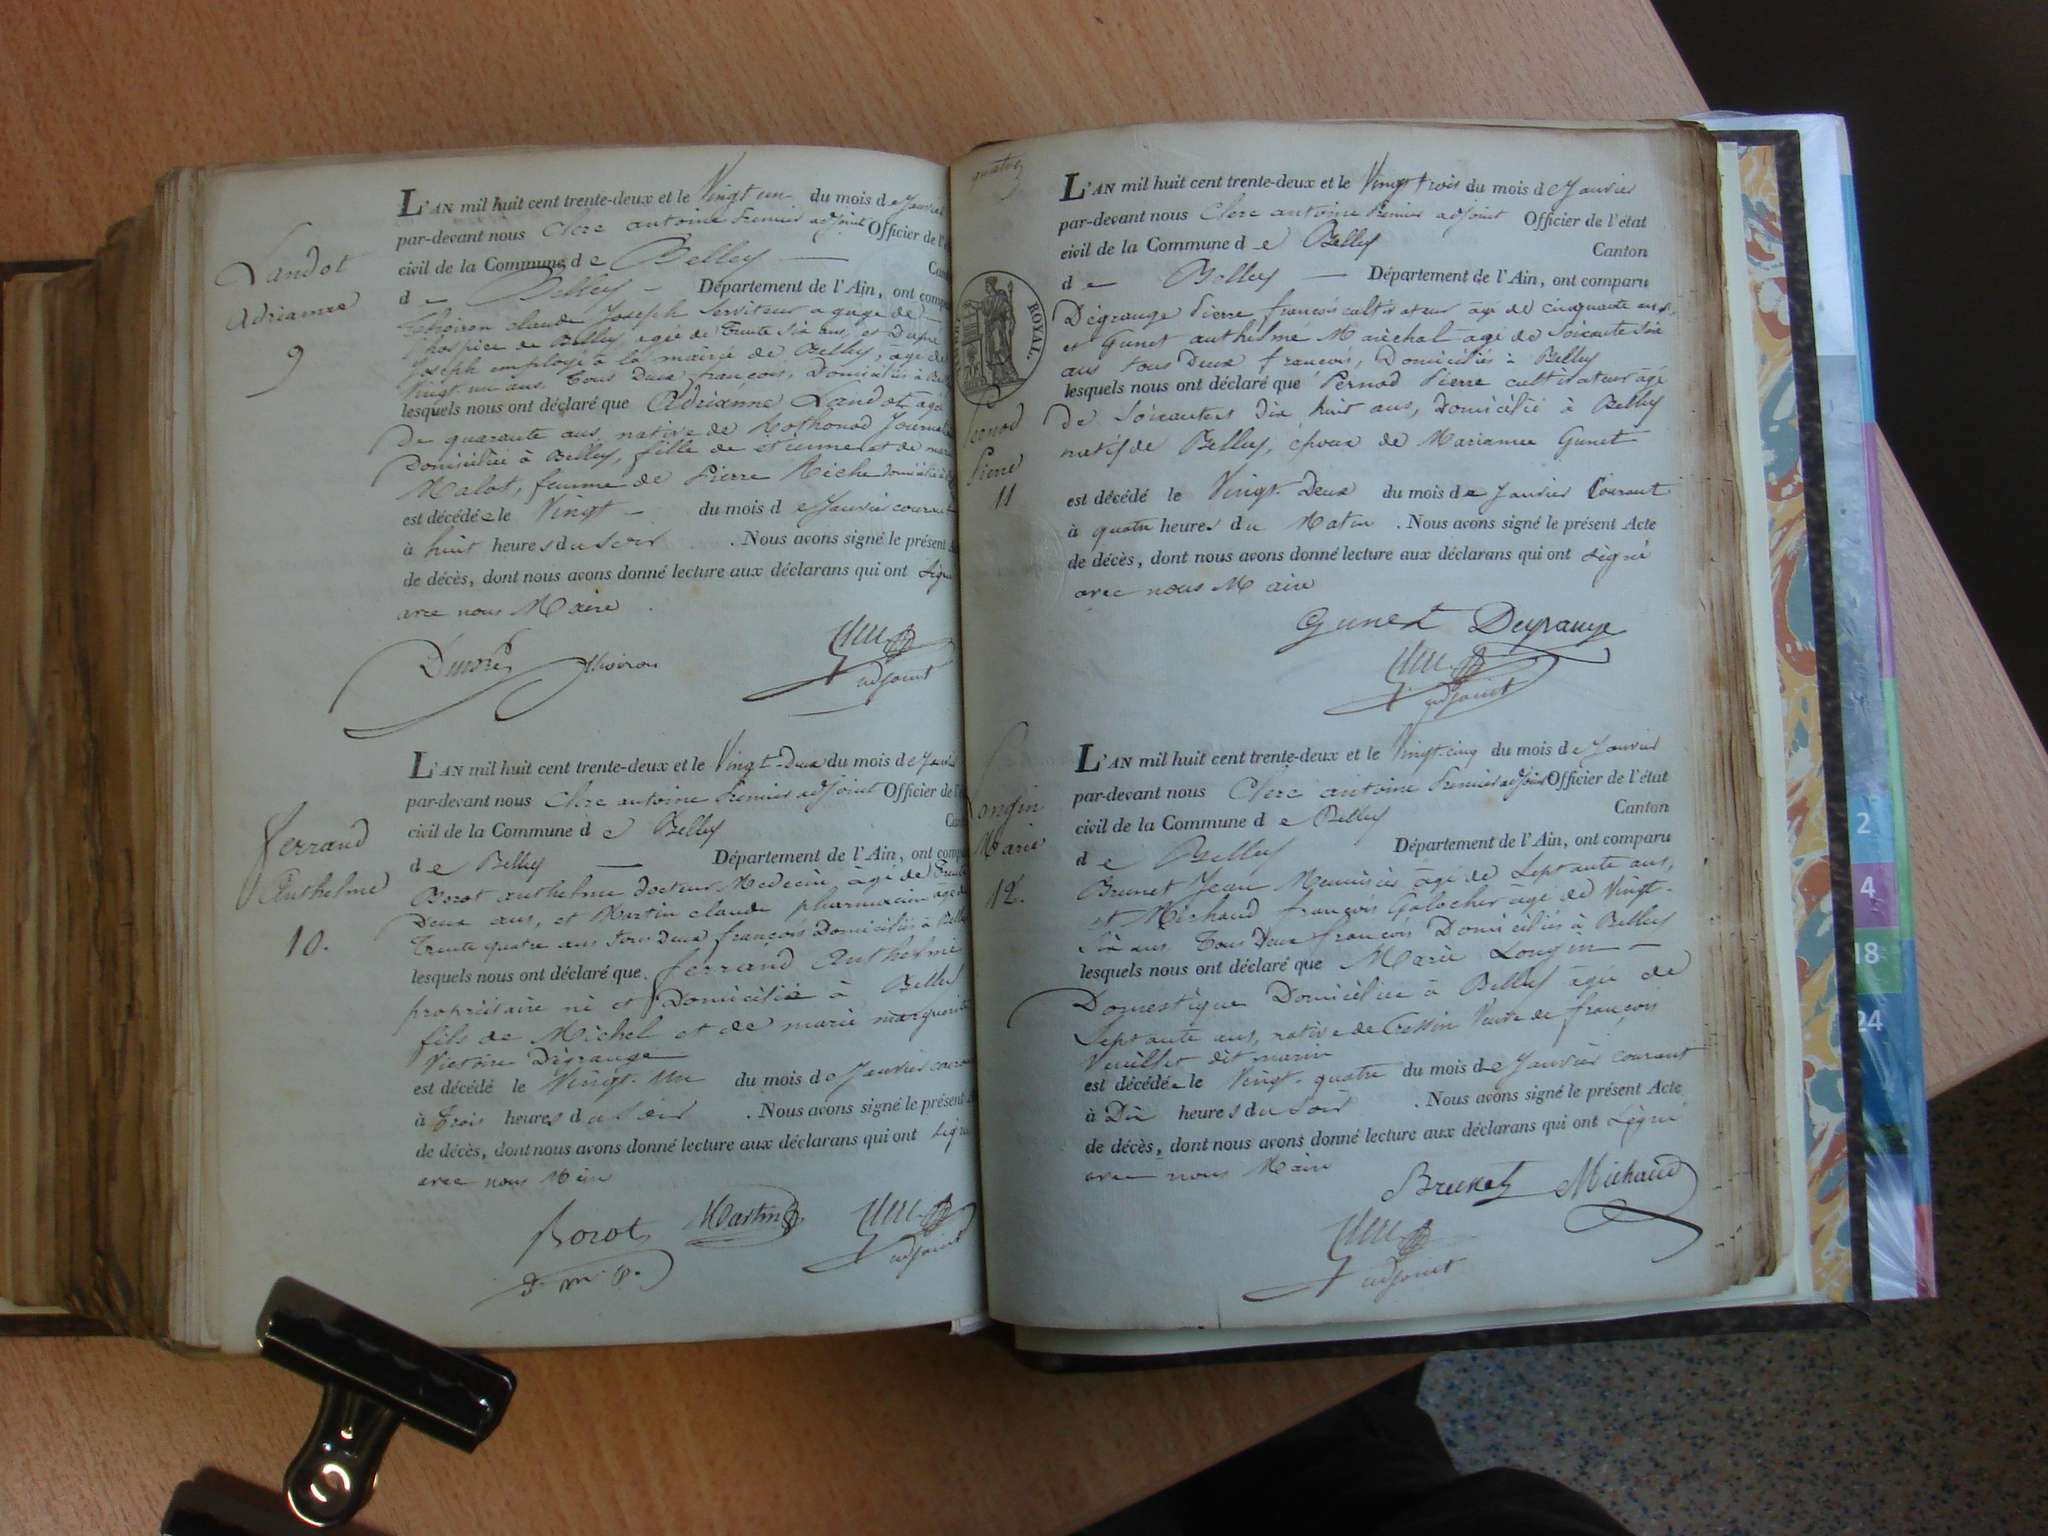 Landot
Adrianne
9
L'AN mil huit cent trente-deux et le Vingt un du mois de Janvier
par-devant nous Clerc antoine Premier adjoint Officier de l'
civil de la Commune de Belley
de Belley Département de l'Ain, ont comp
claude Joseph Serviteur a gage de
l'hospice de Belley, agé de Trente Six ans, et Dupré
Joseph employé à la mairie de Belley, agé de
Vingt un ans Tous Deux françois, Domiciliés à Bell
lesquels nous ont déclaré que Adrianne Landot agé
De quarante ans native de Rothonod Journal
Domiciliée à Belley, fille de étienne et de marie
Malot, femme de Pierre Riche domicilié à
est décédée le Vingt du mois de Janvier courant
à huit heures du Soir . Nous avons signé le présent A
de décès, dont nous avons donné lecture aux déclarans qui ont Signé
avec nous Maire
Dupré Thoiron
adjoint
ferrand
Anthelme
10.
L'AN mil huit cent trente-deux et le Vingt-Deux du mois de Janvier
par-devant nous Clerc antoine Premier adjoint Officier de l'é
civil de la Commune de Belley Can
de Belley Département de l'Ain, ont comp
Borot anthelme Docteur Medecin âgé de Trente
Deux ans, et Martin claude pharmacien agé de
Trente quatre ans tous Deux françois Domiciliés à Belley
lesquels nous ont déclaré que ferrand Anthelme
propriétaire né et Domicilié à Belley
fils de Michel et de marie marguerite
Victoire Dégrange
est décédé le Vingt-Un du mois de Janvier coura
à Trois heures du Soir . Nous avons signé le présent A
de décès, dont nous avons donné lecture aux déclarans qui ont signé
avec nous Maire
Borot Martin
d. m. p. adjoint
quatre
ROYAL.
Pernod
Pierre
11
L'AN mil huit cent trente-deux et le Vingt trois du mois de Janvier
par-devant nous Clerc antoine Premier adjoint Officier de l'état
civil de la Commune de Belley Canton
de Belley Département de l'Ain, ont comparu
Dégrange Pierre françois cultivateur âgé de cinquante ans,
et Gunet anthelme Maréchal agé de Soixante Six
ans tous Deux françois, Domiciliés à Belley
lesquels nous ont déclaré que Pernod Pierre cultivateur âgé
de Soixante et Dix huit ans, Domicilié à Belley
natif de Belley, époux de Marianne Gunet
est décédé le Vingt-Deux du mois de Janvier Courant
à quatre heures du Matin . Nous avons signé le présent Acte
de décès, dont nous avons donné lecture aux déclarans qui ont signé
avec nous Maire
Gunet Degrange
adjoint
Longin
Marie
12.
L'AN mil huit cent trente-deux et le Vingt cinq du mois de Janvier
par-devant nous Clerc antoine Premier adjoint Officier de l'état
civil de la Commune de Belley Canton
de Belley Département de l'Ain, ont comparu
Brunet Jean Menuisier âgé de Septante ans,
et Michaud françois Galocher âgé de Vingt-
Six ans Tous Deux françois Domiciliés à Belley
lesquels nous ont déclaré que Marie Longin
Domestique Domiciliée à Belley âgée de
Septante ans, native de Cressin Veuve de françois
Vuillet dit marin
est décédée le Vingt-quatre du mois de Janvier courant
à Dix heures du Soir . Nous avons signé le présent Acte
de décès, dont nous avons donné lecture aux déclarans qui ont signé
avec nous Maire
Brunet Michaud
adjoint
2
4
18
24